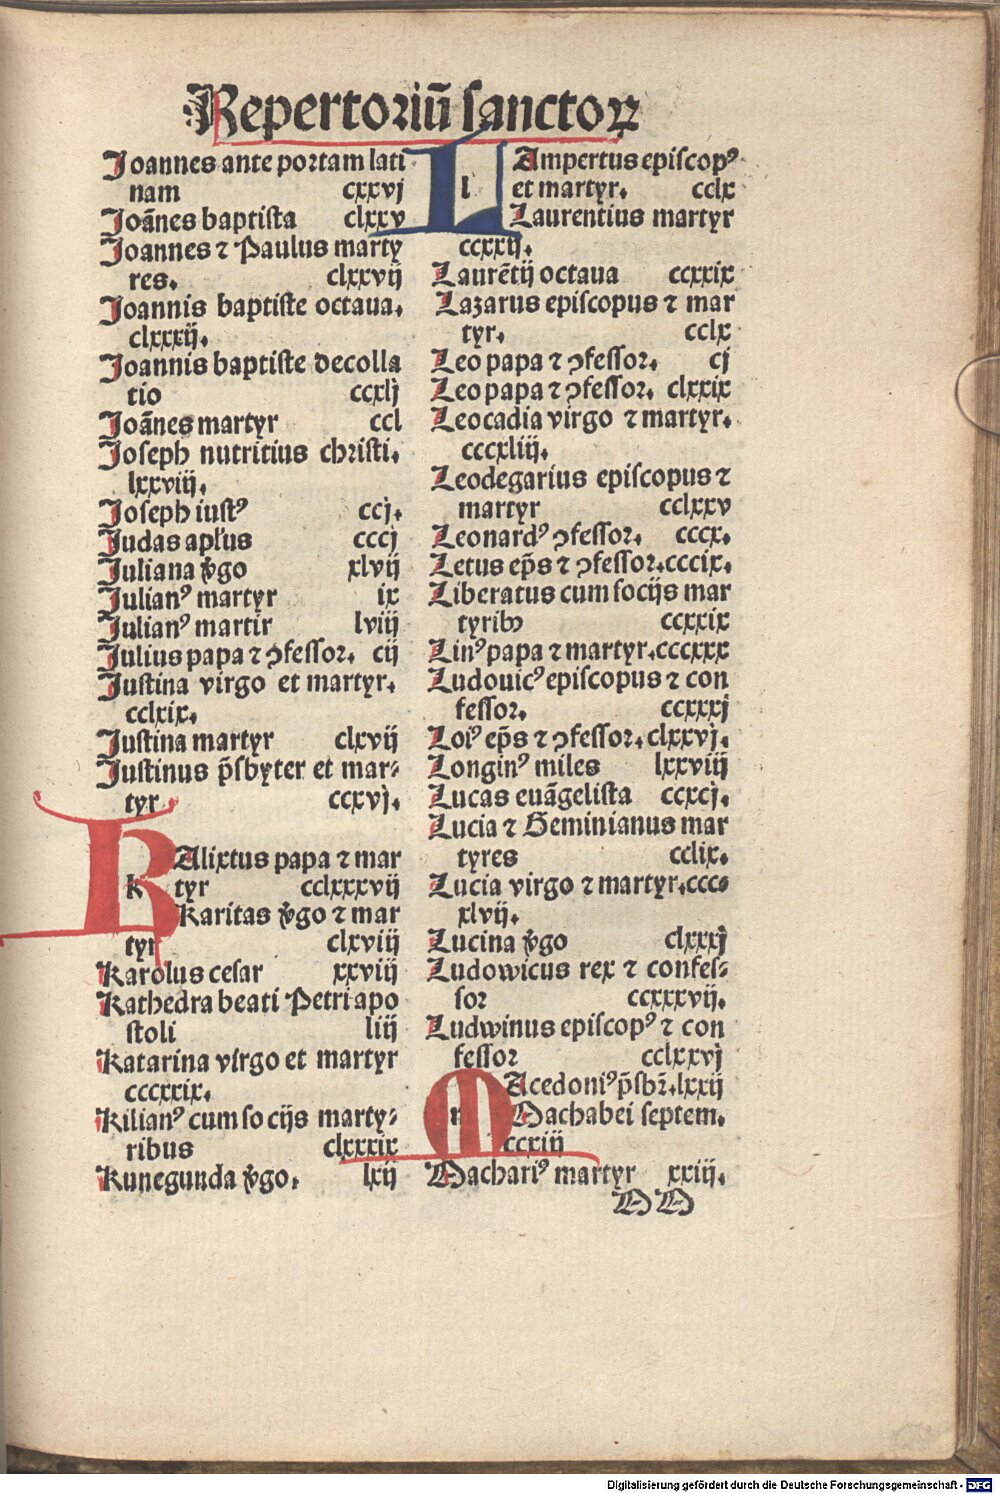 Repertoriū sanctoꝝ
Joannes ante portam lati
nam cxxvj
Joānes baptista clxxv
Joannes ⁊ Paulus marty
res. clxxvij
Joannis baptiste octaua.
clxxxij.
Joannis baptiste decolla
tio ccxlj
Joānes martyr ccl
Joseph nutritius christi.
lxxviij.
Joseph iustꝰ ccj.
Judas apl'us cccj
Juliana v̄go xlvij
Julianꝰ martyr ix
Julianꝰ martir lviij
Julius papa ⁊ ꝯfessor. cij
Justina virgo et martyr.
cclxix.
Justina martyr clxvij
Justinus p̄sbyter et mar⸗
tyr ccxvj.
k
KAlixtus papa ⁊ mar
tyr cclxxxvij
Karitas v̄go ⁊ mar
tyr clxviij
Karolus cesar xxviij
Kathedra beati Petri apo
stoli liij
Katarina virgo et martyr
cccxxix.
Kilianꝰ cum socijs marty⸗
ribus clxxxix
Kunegunda v̄go. lxij
l
LAmpertus episcopꝰ
et martyr. cclx
Laurentius martyr
ccxxij.
Laurētij octaua ccxxix
Lazarus episcopus ⁊ mar
tyr. cclx
Leo papa ⁊ ꝯfessor. cj
Leo papa ⁊ ꝯfessor. clxxix
Leocadia virgo ⁊ martyr.
cccxliij.
Leodegarius episcopus ⁊
martyr cclxxv
Leonardꝰ ꝯfessor. cccx.
Letus ep̄s ⁊ ꝯfessor. cccix.
Liberatus cum socijs mar
tyribꝰ ccxxix
Linꝰ papa ⁊ martyr. cccxxx
Ludouicꝰ episcopus ⁊ con
fessor. ccxxxj
Loiꝰ ep̄s ⁊ ꝯfessor. clxxvj.
Longinꝰ miles lxxviij
Lucas euāgelista ccxcj.
Lucia ⁊ Geminianus mar
tyres cclix.
Lucia virgo ⁊ martyr. ccc⸗
xlvij.
Lucina v̄go clxxxj
Ludowicus rex ⁊ confes⸗
sor ccxxxvij.
Ludwinus episcopꝰ ⁊ con
fessor cclxxvj
m
MAcedoniꝰ p̄sbr̄. lxxij
Machabei septem.
ccxiij
Machariꝰ martyr xxiij.
MM
Digitalisierung gefördert durch die Deutsche Forschungsgemeinschaft - DFG